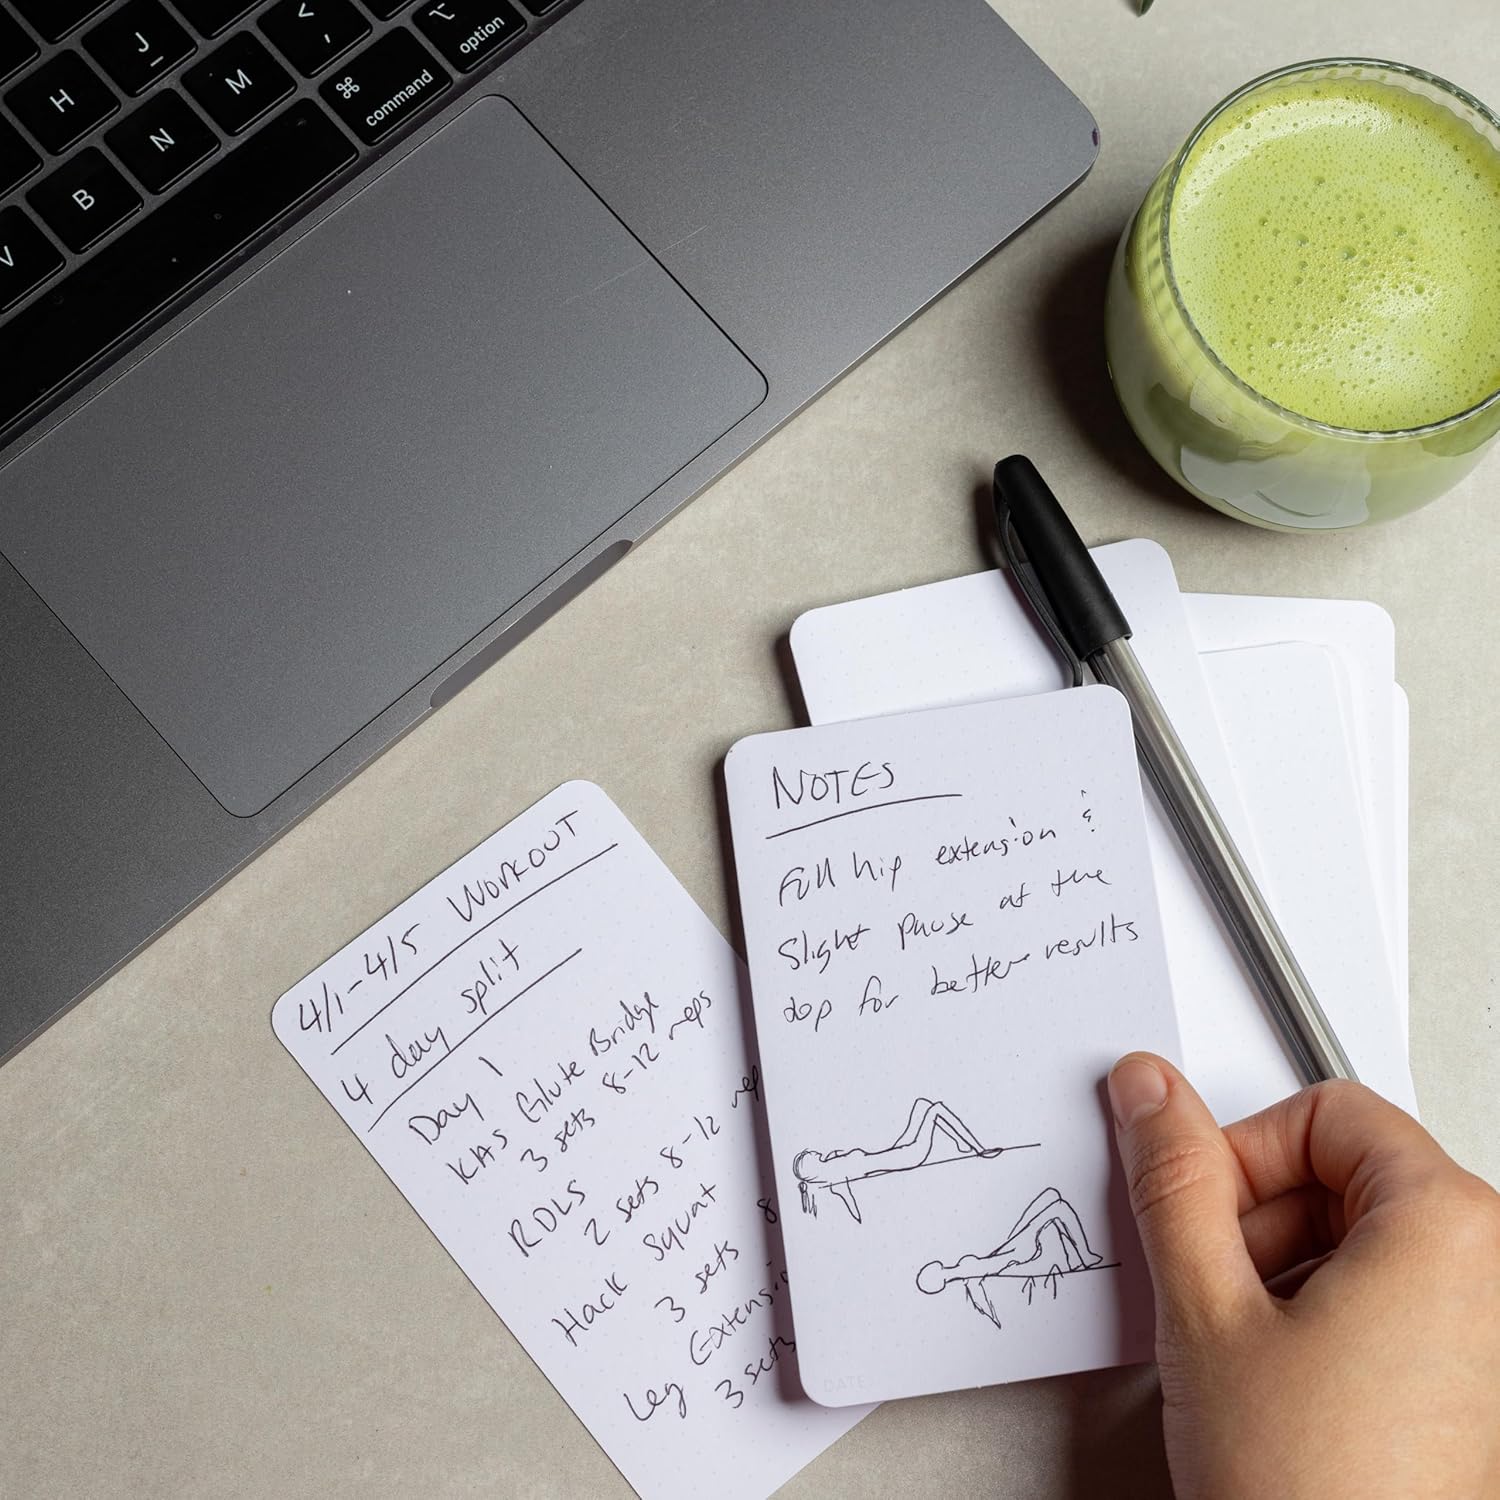 J
<
,
⌥
option
H
M
⌘
command
N
B
V
NOTES
Full hip extension &
slight pause at the
top for better results
DATE
4/1-4/5 WORKOUT
4 day split
Day 1
KAS Glute Bridge
3 sets 8-12 reps
RDLS
2 sets 8-12 rep
Hack Squat
3 sets 8
Leg Extensio
3 sets